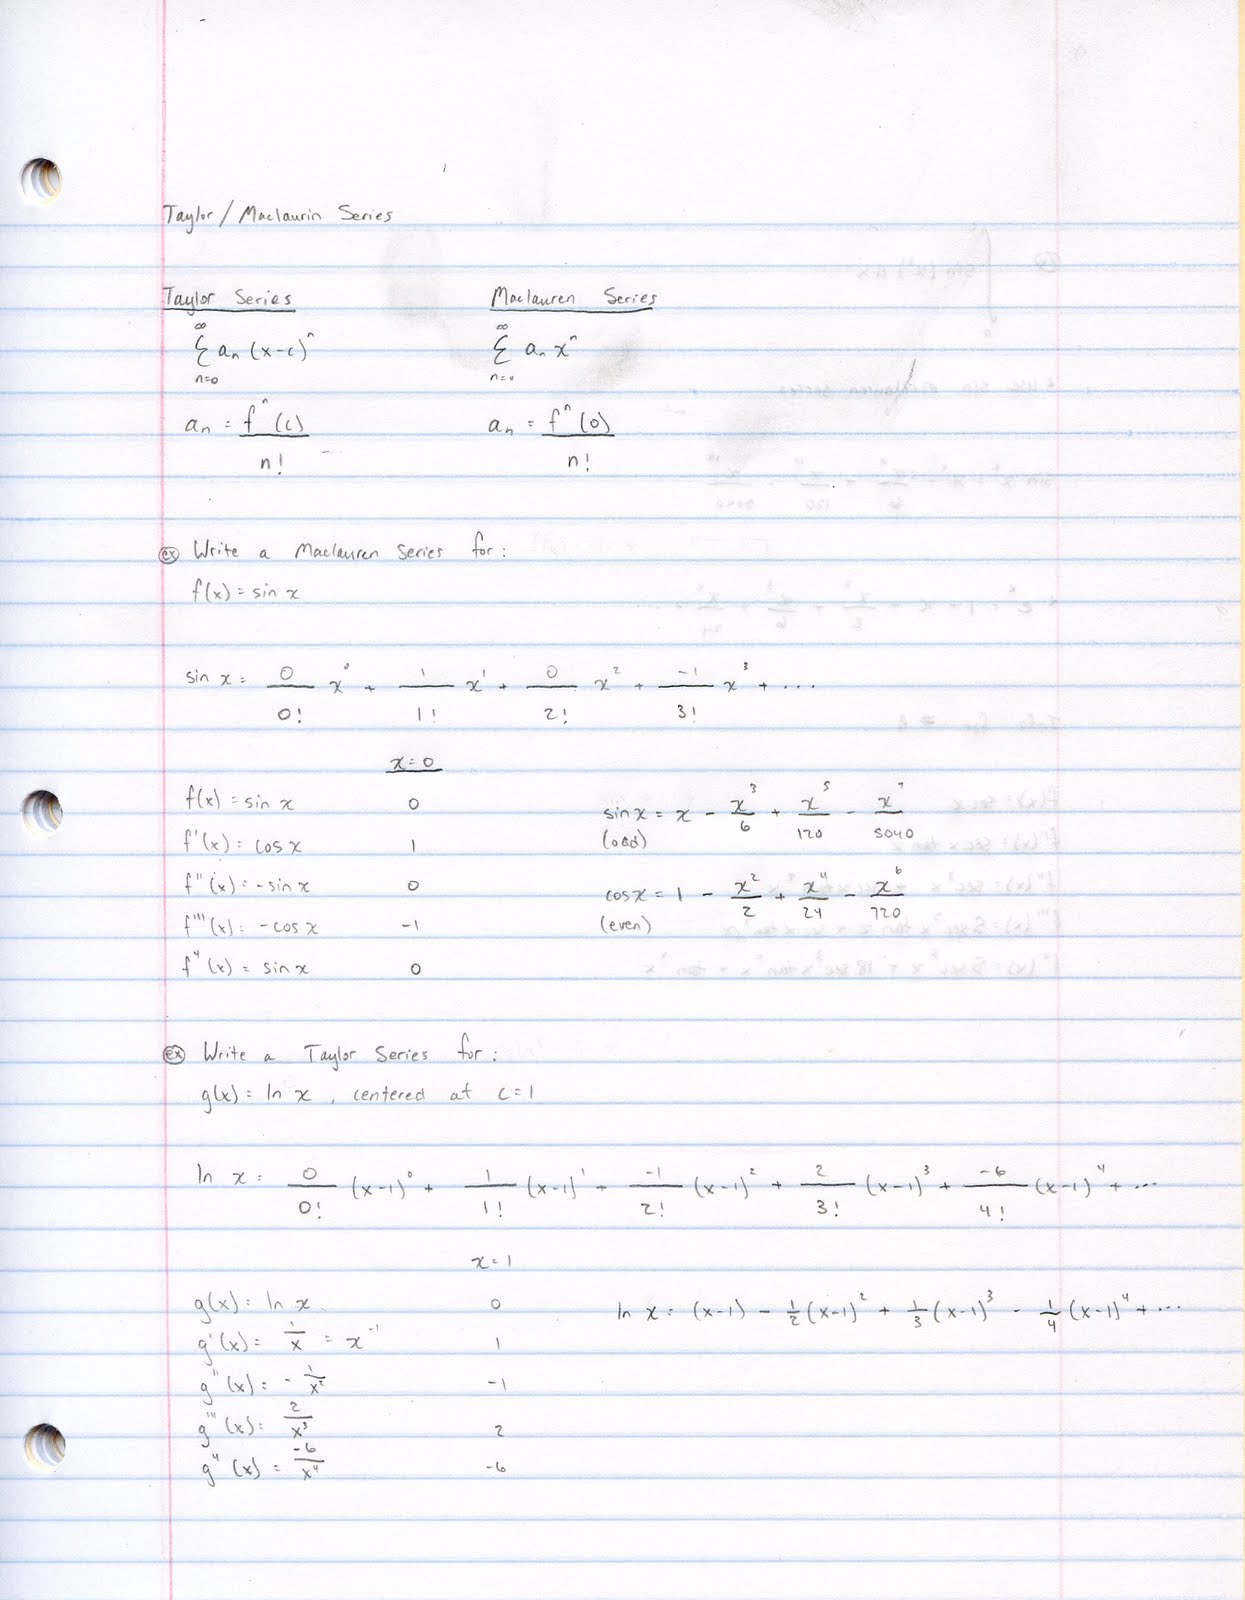 Taylor / Maclaurin Series
Taylor Series    Maclauren Series
∞ Σ n=0 aₙ (x-c)ⁿ    ∞ Σ n=0 aₙ xⁿ
aₙ = fⁿ(c) / n!    aₙ = fⁿ(0) / n!
ex Write a Maclauren Series for:
f(x) = sin x
sin x = 0/0! x⁰ + 1/1! x¹ + 0/2! x² + -1/3! x³ + ...
x=0
f(x) = sin x    0
f'(x) = cos x    1
f''(x) = -sin x    0
f'''(x) = -cos x    -1
f⁴(x) = sin x    0
sin x = x - x³/6 + x⁵/120 - x⁷/5040
(odd)
cos x = 1 - x²/2 + x⁴/24 - x⁶/720
(even)
ex Write a Taylor Series for:
g(x) = ln x , centered at c=1
ln x = 0/0! (x-1)⁰ + 1/1! (x-1)¹ + -1/2! (x-1)² + 2/3! (x-1)³ + -6/4! (x-1)⁴ + ...
x=1
g(x) = ln x    0
g'(x) = 1/x = x⁻¹    1
g''(x) = - 1/x²    -1
g'''(x) = 2/x³    2
g⁴(x) = -6/x⁴    -6
ln x = (x-1) - 1/2 (x-1)² + 1/3 (x-1)³ - 1/4 (x-1)⁴ + ...